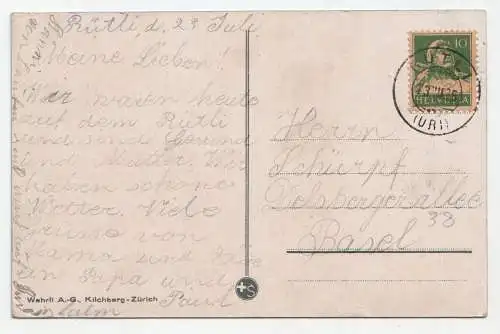 Rütli, d. 23 Juli
Meine Lieben!
Wir waren heute
auf dem Rütli
und sind Gesund
und Munter. Wir
haben schönes
Wetter. Viele
grüsse von
Mama und
an Papa und
Paul
Wehrli A.-G., Kilchberg-Zürich
10
HELVETIA
(URI)
Herrn
Schürpf
Delsbergerallee
38
Basel